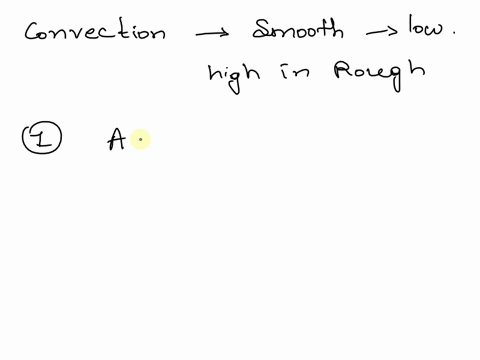 Convection → Smooth → low.
high in Rough
① A